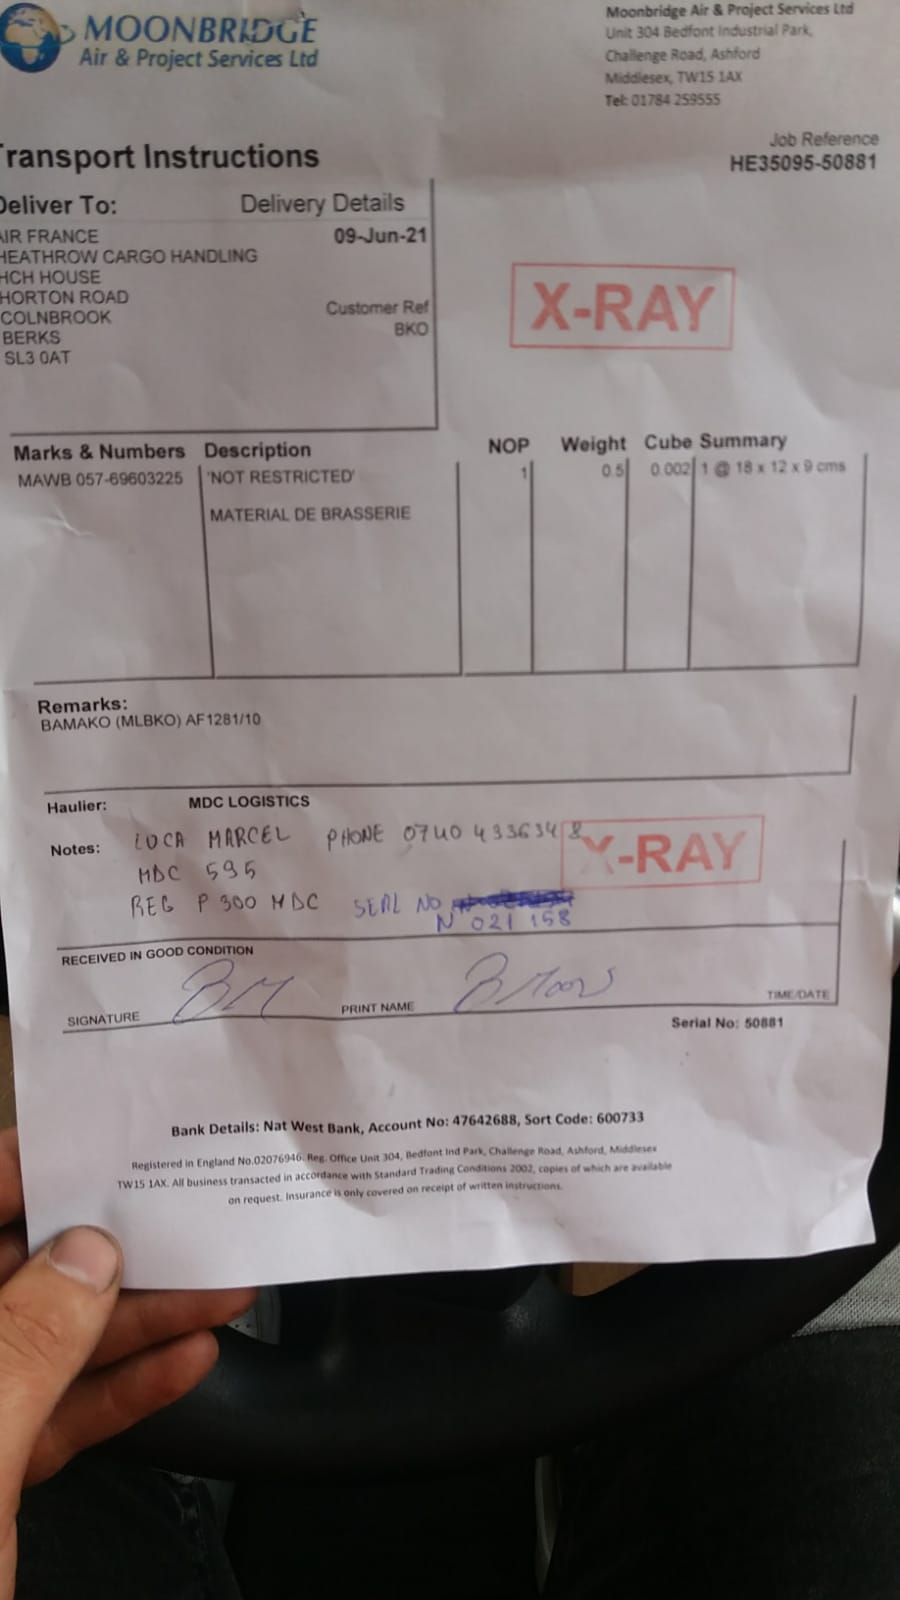 MOONBRIDGE
Air & Project Services Ltd
Moonbridge Air & Project Services Ltd
Unit 304 Bedfont Industrial Park,
Challenge Road, Ashford
Middlesex, TW15 1AX
Tel: 01784 259555
Job Reference
HE35095-50881
Transport Instructions
Deliver To: Delivery Details
AIR FRANCE 09-Jun-21
HEATHROW CARGO HANDLING
HCH HOUSE
HORTON ROAD
COLNBROOK
BERKS
SL3 0AT
Customer Ref
BKO
X-RAY
Marks & Numbers Description NOP Weight Cube Summary
MAWB 057-69603225 'NOT RESTRICTED' 1 0.5 0.002 1 @ 18 x 12 x 9 cms
MATERIAL DE BRASSERIE
Remarks:
BAMAKO (MLBKO) AF1281/10
Haulier: MDC LOGISTICS
Notes: LUCA MARCEL PHONE 0740 4336348
X-RAY
MDC 595
REG P 300 MDC SERL NO
N 021 158
RECEIVED IN GOOD CONDITION
SIGNATURE BM PRINT NAME B Moors TIME/DATE
Serial No: 50881
Bank Details: Nat West Bank, Account No: 47642688, Sort Code: 600733
Registered in England No.02076946. Reg. Office Unit 304, Bedfont Ind Park, Challenge Road, Ashford, Middlesex
TW15 1AX. All business transacted in accordance with Standard Trading Conditions 2002, copies of which are available
on request. Insurance is only covered on receipt of written instructions.